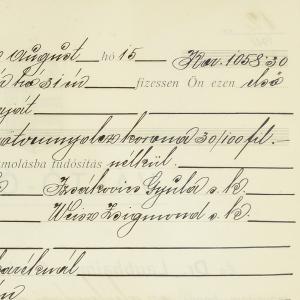 august hó 15 Kor. 1058:30
fizessen Ön ezen első
saját
ötvennyolcz korona 30/100 fil. –
zámolásba tudósitás nélkül.
Izsákovics Gyula s. k.
Weisz Zsigmond s. k.